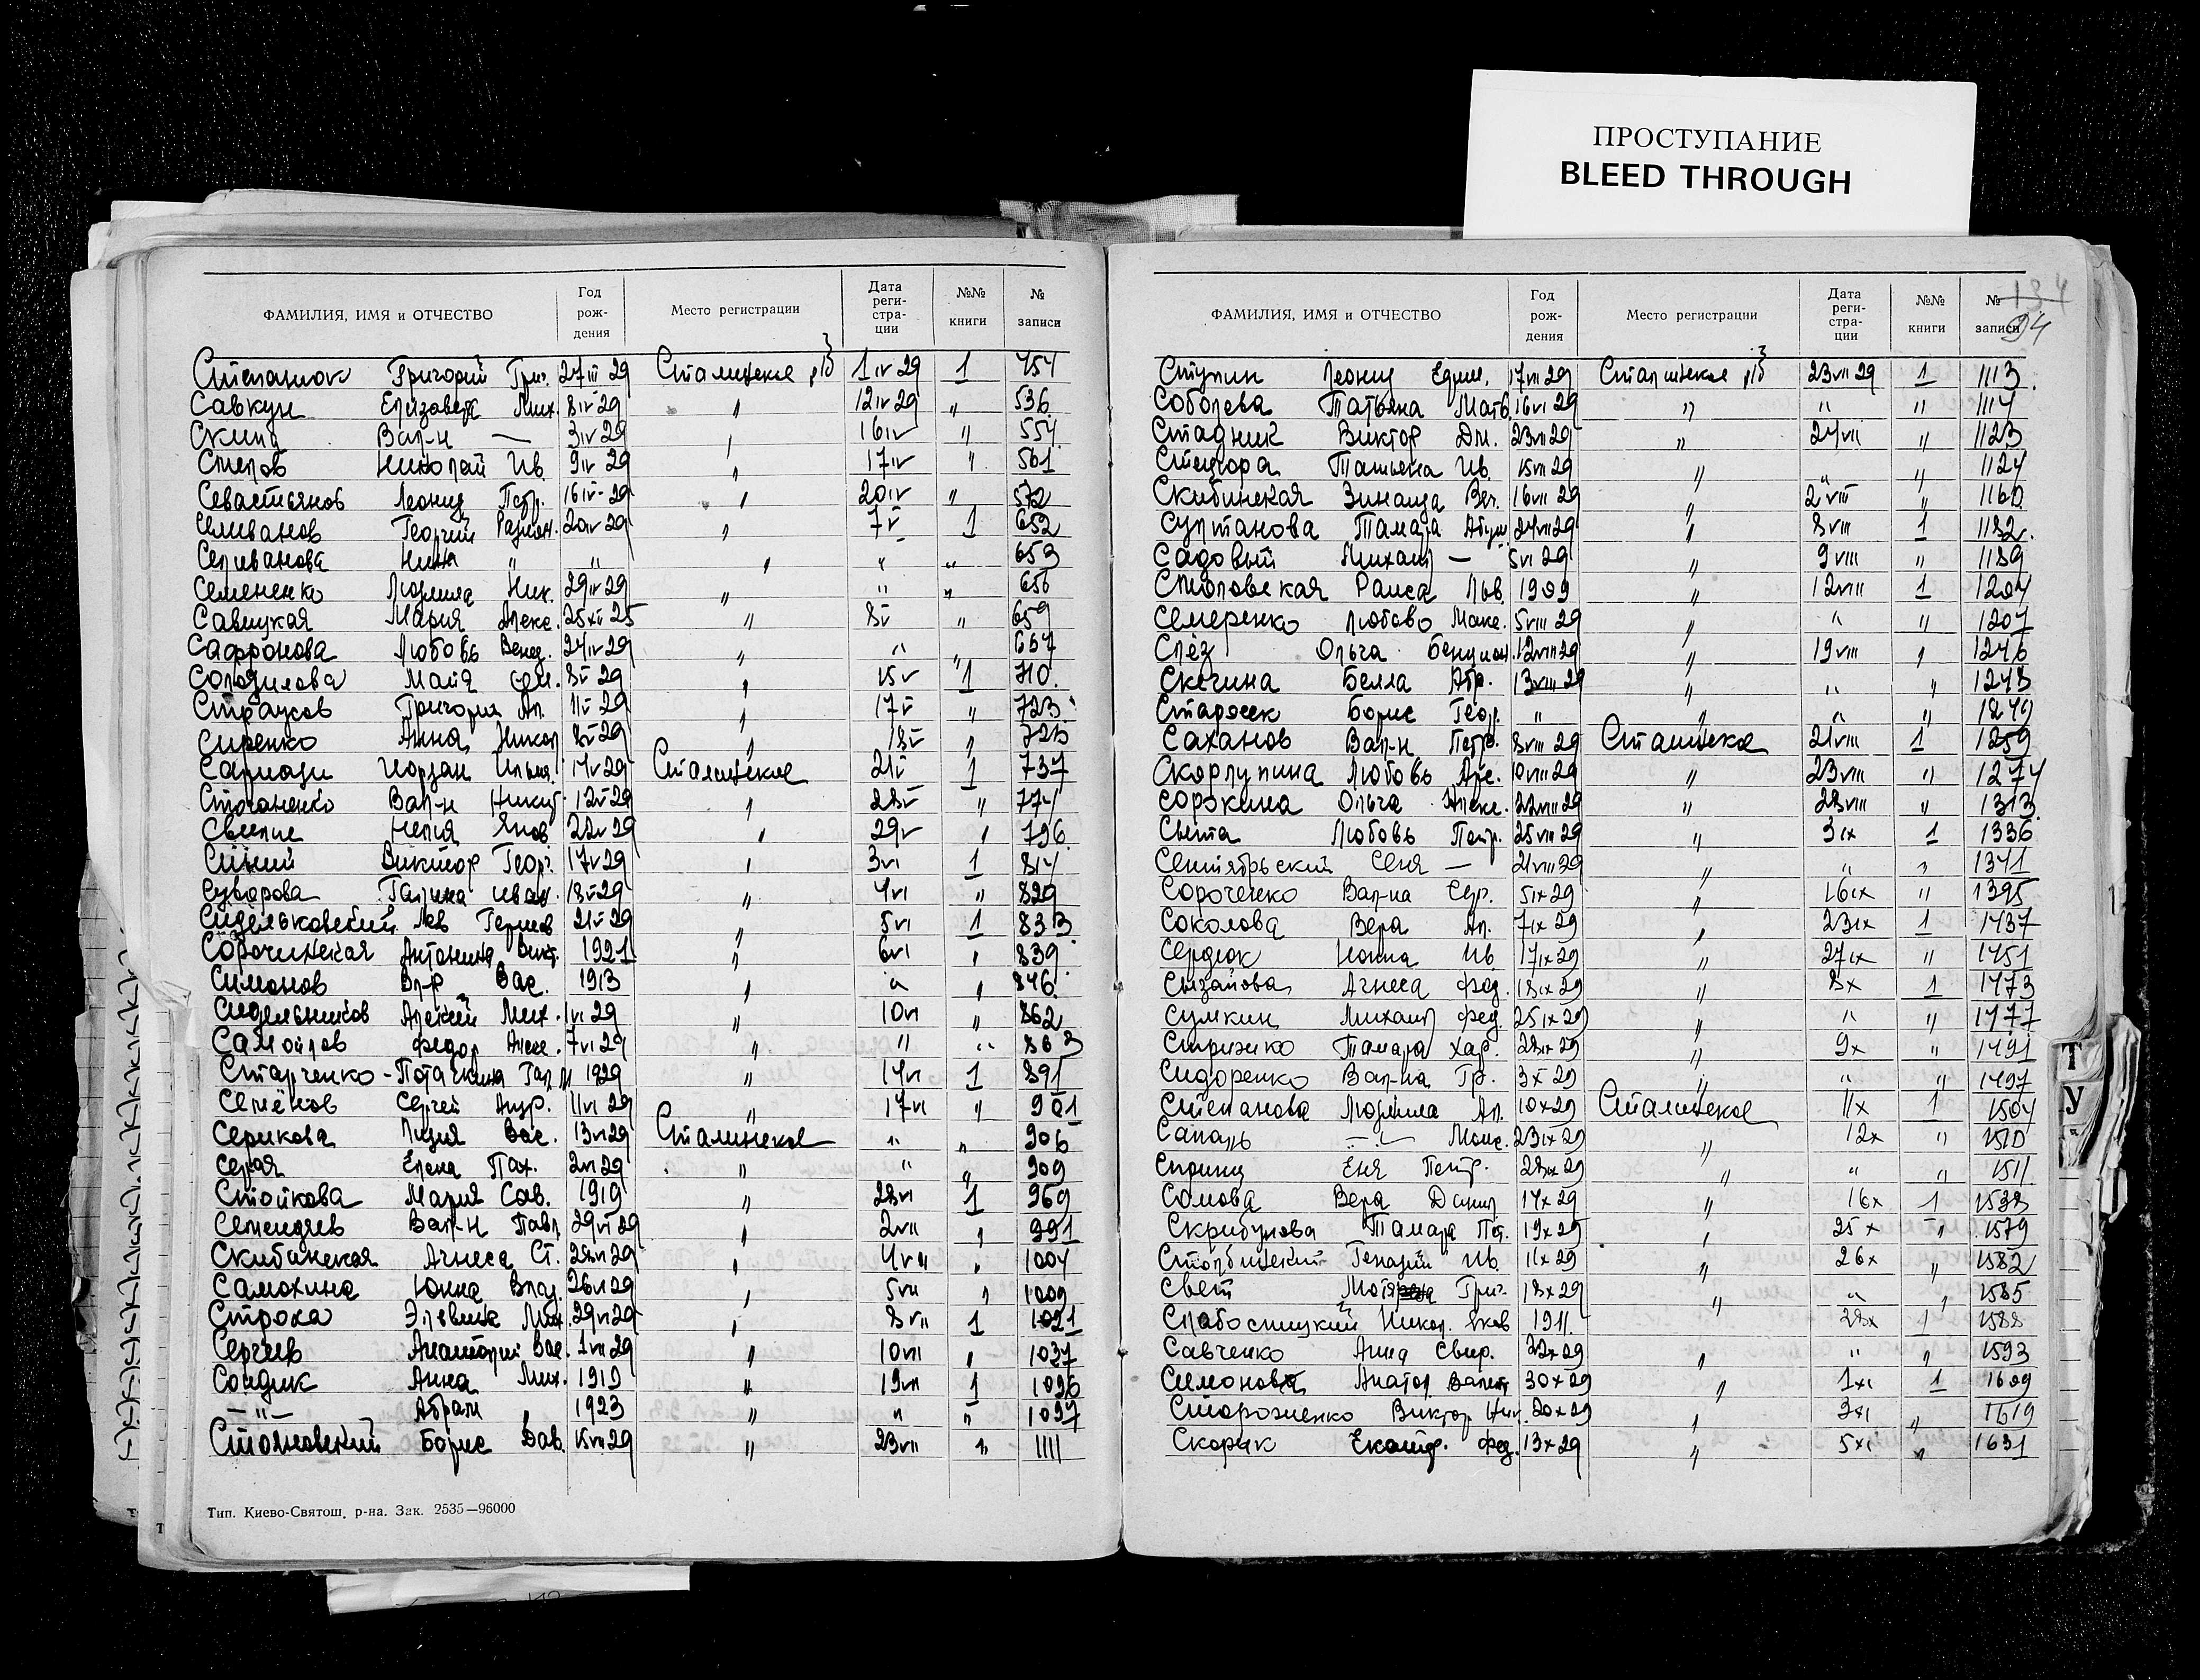 ПРОСТУПАНИЕ
BLEED THROUGH
ФАМИЛИЯ, ИМЯ и ОТЧЕСТВО Год рождения Место регистрации Дата регистрации №№ книги № записи
Степанюк Григорий Григ. 27 III 29 Сталинское 1 IV 29 1 454
Савкун Елизавета Мих. 8 IV 29 " 12 IV 29 " 536
Вал-н — 3 IV 29 " 16 IV " 554
Николай Ив. 9 IV 29 " 17 IV " 561
Севастьянов Леонид Петр. 16 IV 29 " 20 IV " 572
Селиванов Георгий 20 IV 29 " 7 V 1 652
Селиванова Нина " " " " " 653
Семененко Людмила Ник. 29 IV 29 " " " 656
Савицкая Мария Алекс. 25 XII 25 " 8 V " 659
Сафронова Любовь 24 IV 29 " " " 667
Солодилова Майя Сем. 8 V 29 " 15 V 1 710
Григорий Ал. 11 V 29 " 17 V " 723
Сиренко Анна Никол. 8 V 29 " 18 V " 726
Йордан 14 V 29 Сталинское 21 V 1 737
Вал-н Никит. 12 V 29 " 28 V " 774
Яков. 22 V 29 " 29 V " 796
Синий Виктор Георг. 17 V 29 " 3 VI 1 814
Суворова Галина Иван. 18 V 29 " 4 VI " 829
Сидельковский Лев 21 V 29 " 5 VI 1 833
Сорочинская Антонина Викт. 1921 " 6 VI " 839
Симонов Вл-р Вас. 1913 " " " 846
Сидельников Алексей Мих. 1 VI 29 " 10 VI " 862
Самойлов Федор Алекс. 7 VI 29 " " " 863
Старченко-Потачкина Гал. 1929 " 14 VI 1 891
Семёнов Сергей Андр. 11 VI 29 " 17 VI " 901
Серикова Лидия Вас. 13 VI 29 Сталинское " " 906
Серая Елена Пах. 2 VI 29 " " " 909
Стойкова Мария Сав. 1919 " 28 VI 1 969
Семендяев Вал-н Павл. 29 VI 29 " 2 VII " 991
Скибинская Агнеса Ст. 28 VI 29 " 4 VII " 1004
Самохина Юнна Влад. 26 VI 29 " 5 VII " 1009
Строка Эльвина Мих. 29 VI 29 " 8 VII 1 1021
Сергеев Анатолий Вас. 1 VII 29 " 10 VII " 1037
Сондик Анна Мих. 1919 " 19 VII 1 1096
—"— Абрам " 1923 " " " 1097
Столновский Борис Дав. 15 VII 29 " 23 VII " 1111
Тип. Киево-Святош. р-на. Зак. 2535—96000
134
94
ФАМИЛИЯ, ИМЯ и ОТЧЕСТВО Год рождения Место регистрации Дата регистрации №№ книги № записи
Ступин Леонид Ефим. 17 VII 29 Сталинское 23 VII 29 1 1113
Соболева Татьяна Матв. 16 VI 29 " " " 1114
Стадник Виктор Дм. 23 VII 29 " 24 VII " 1123
Татьяна Ив. 15 VII 29 " " " 1124
Скибинская Зинаида Вяч. 16 VII 29 " 2 VIII " 1160
Султанова Тамара 24 VII 29 " 8 VIII 1 1182
Садовый Михаил — 5 VI 29 " 9 VIII " 1189
Раиса Льв. 1909 " 12 VIII 1 1204
Семеренко Любовь Макс. 5 VIII 29 " " " 1207
Слёз Ольга Бенцион. 12 VIII 29 " 19 VIII " 1246
Скечина Белла Абр. 13 VIII 29 " " " 1248
Старосек Борис Геор. " " " " 1249
Саханов Вал-н Петр. 8 VIII 29 Сталинское 21 VIII 1 1259
Скорлупина Любовь Арс. 10 VIII 29 " 23 VIII " 1274
Сорокина Ольга Алекс. 22 VIII 29 " 28 VIII " 1313
Света Любовь Петр. 25 VIII 29 " 3 IX 1 1336
Сентябрьский Сеня — 21 VIII 29 " " " 1341
Сороченко Вал-на Сер. 5 IX 29 " 16 IX " 1395
Соколова Вера Ал. 7 IX 29 " 23 IX 1 1437
Сердюк Нонна Ив. 17 IX 29 " 27 IX " 1451
Сызайова Агнеса Фед. 18 IX 29 " 8 X 1 1473
Сумкин Михаил Фед. 25 IX 29 " " " 1477
Тамара Хар. 28 IX 29 " 9 X " 1491
Сидоренко Вал-на Гр. 3 X 29 " " " 1497
Степанова Людмила Ал. 10 X 29 Сталинское 11 X 1 1504
Сапаль —"— Моис. 23 IX 29 " 12 X " 1510
Спринц Еня Петр. 28 IX 29 " " " 1511
Сомова Вера Данил. 14 X 29 " 16 X 1 1538
Скрибунова Тамара Пет. 19 X 29 " 25 X " 1579
Столбинский Генадий Ив. 11 X 29 " 26 X " 1582
Свет Григ. 18 X 29 " " " 1585
Слабоспицкий Никол. Яков 1911 28 X 1 1588
Савченко Анна Свир. 22 X 29 " " " 1593
Симонова Анатол. Валент. 30 X 29 " 1 XI 1 1609
Стороженко Виктор Ник. 20 X 29 " 3 XI " 1619
Скорык Екатер. Фед. 13 X 29 " 5 XI " 1631
Т
У